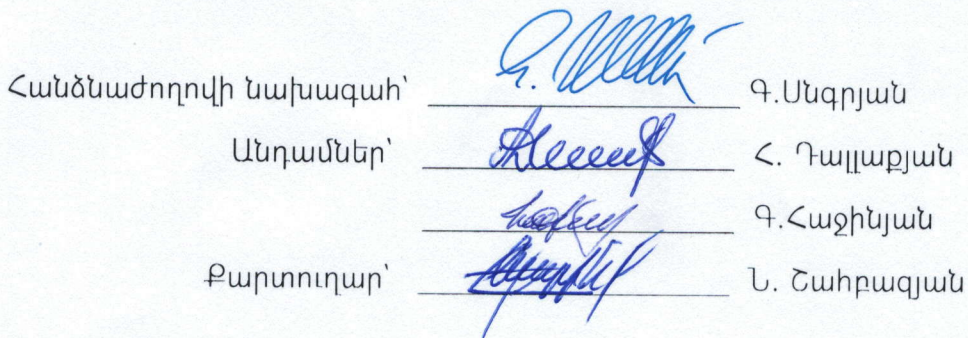 Հանձնաժողովի նախագահ՝ Գ.Սնգրյան
Անդամներ՝ Հ. Դալլաքյան
Գ.Հաջինյան
Քարտուղար՝ Ն. Շահբազյան